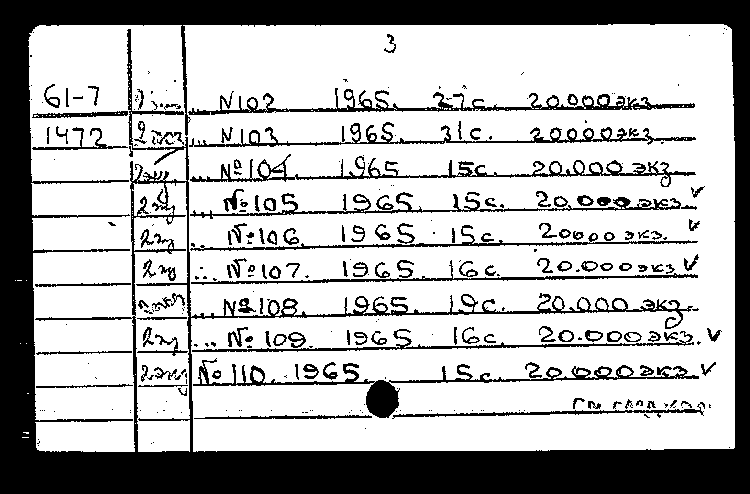 3
61-7 ... N102 1965. 27с. 20.000экз
1472 2 экз ... N103 1965. 31с. 20000экз.
2экз. ... №104. 1965 15с. 20.000 экз
2экз ... №105 1965. 15с. 20.000экз. V
2экз ... №106 1965 15с. 20000экз. V
2экз ... №107. 1965. 16с. 20.000экз V
2экз ... №108. 1965. 19с. 20.000 экз.
2экз ... №109. 1965 16с. 20.000экз. V
2экз №110. 1965. 15с. 20.000экз. V
см